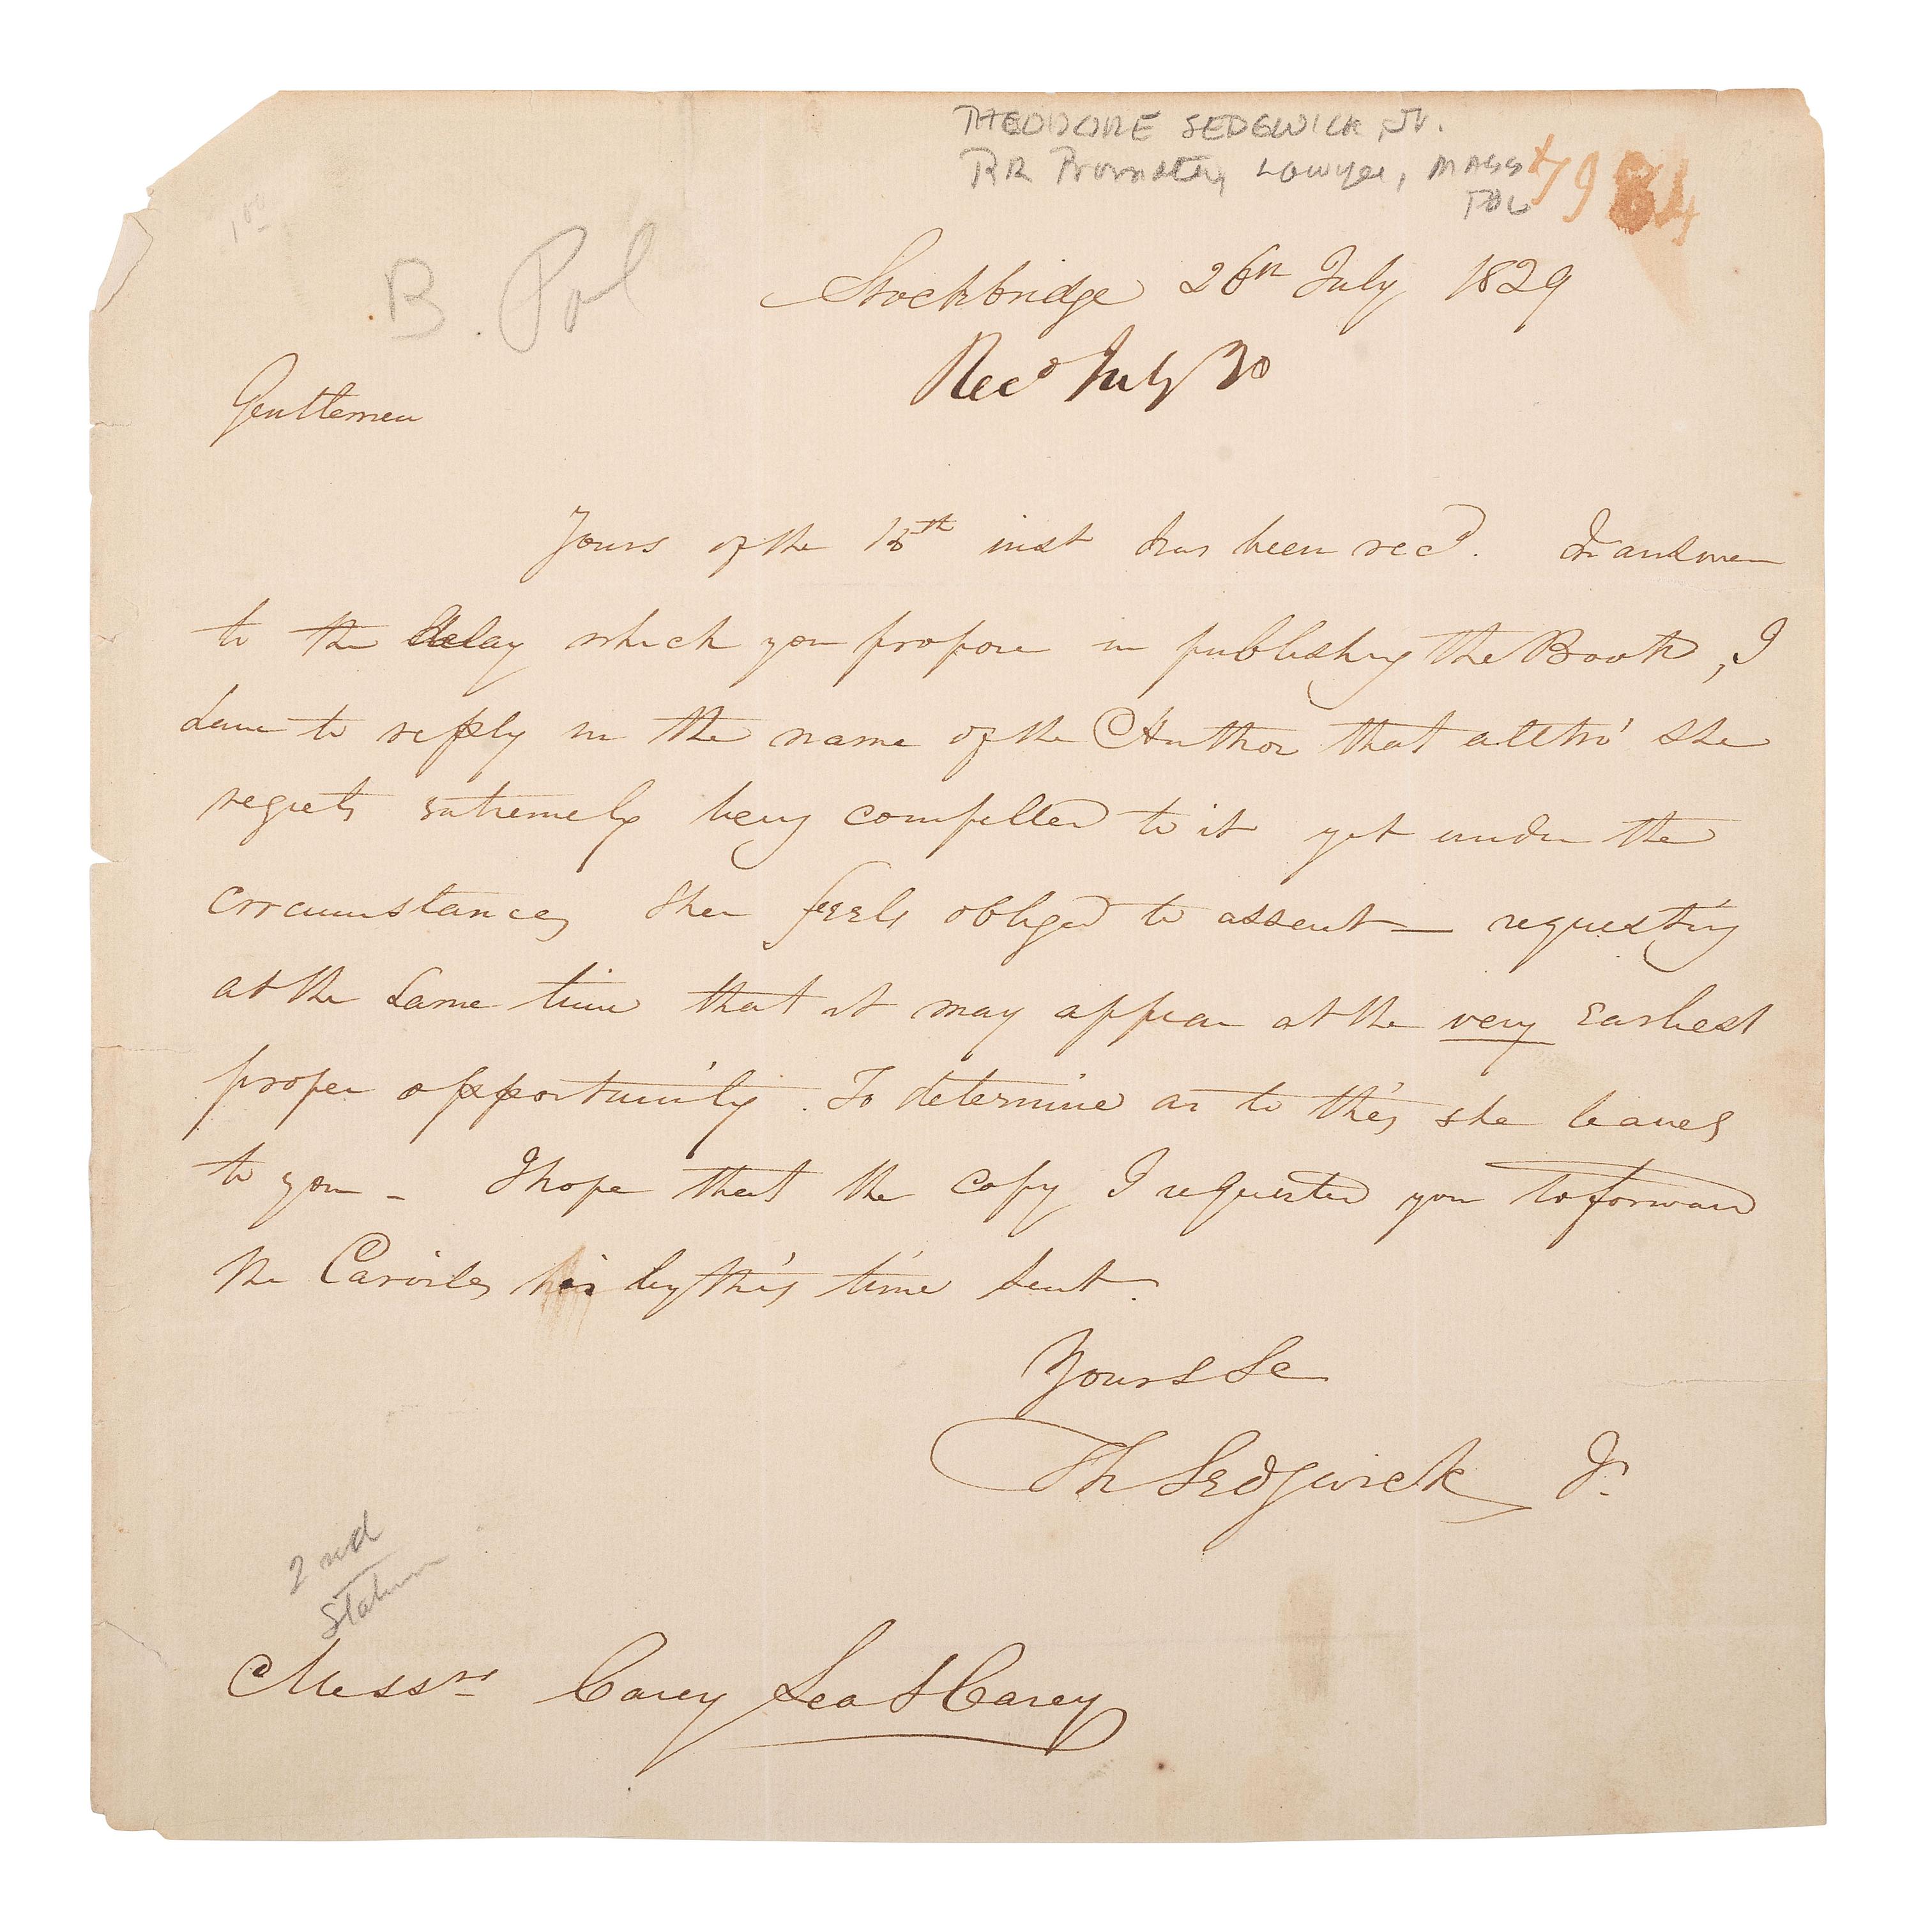 THEODORE SEDGWICK, Jr.
RR Promoter, Lawyer, MASS
B. Pol
Stockbridge 26th July 1829
Recd July 30
Gentlemen
Yours of the 18th inst has been recd. In answer
to the delay which you propose in publishing the Book, I
have to reply in the name of the Author that altho' she
regrets extremely being compelled to it yet under the
circumstances she feels obliged to assent — requesting
at the same time that it may appear at the very earliest
proper opportunity. To determine as to this she leaves
to you – I hope that the copy I requested you to forward
the Carvills is by this time sent.
Yours &c
Th Sedgwick Jr.
2nd
Messrs Carey Lea & Carey